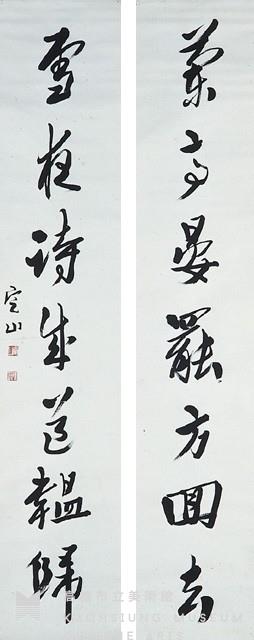 蘭亭宴罷方回去
雪夜詩成道韞歸
定山
高雄市立美術館
KAOHSIUNG MUSEUM
OF FINE ARTS